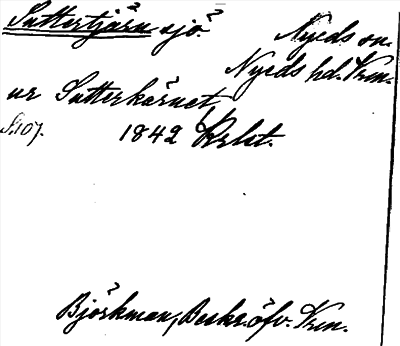 Suttertjärn sjö. Nyeds sn.
Nyeds hd. Vrm.
ur Sutterkärnet,
S. 107. 1842 Krlst.
Björkman, Beskr. öfv. Vrm.